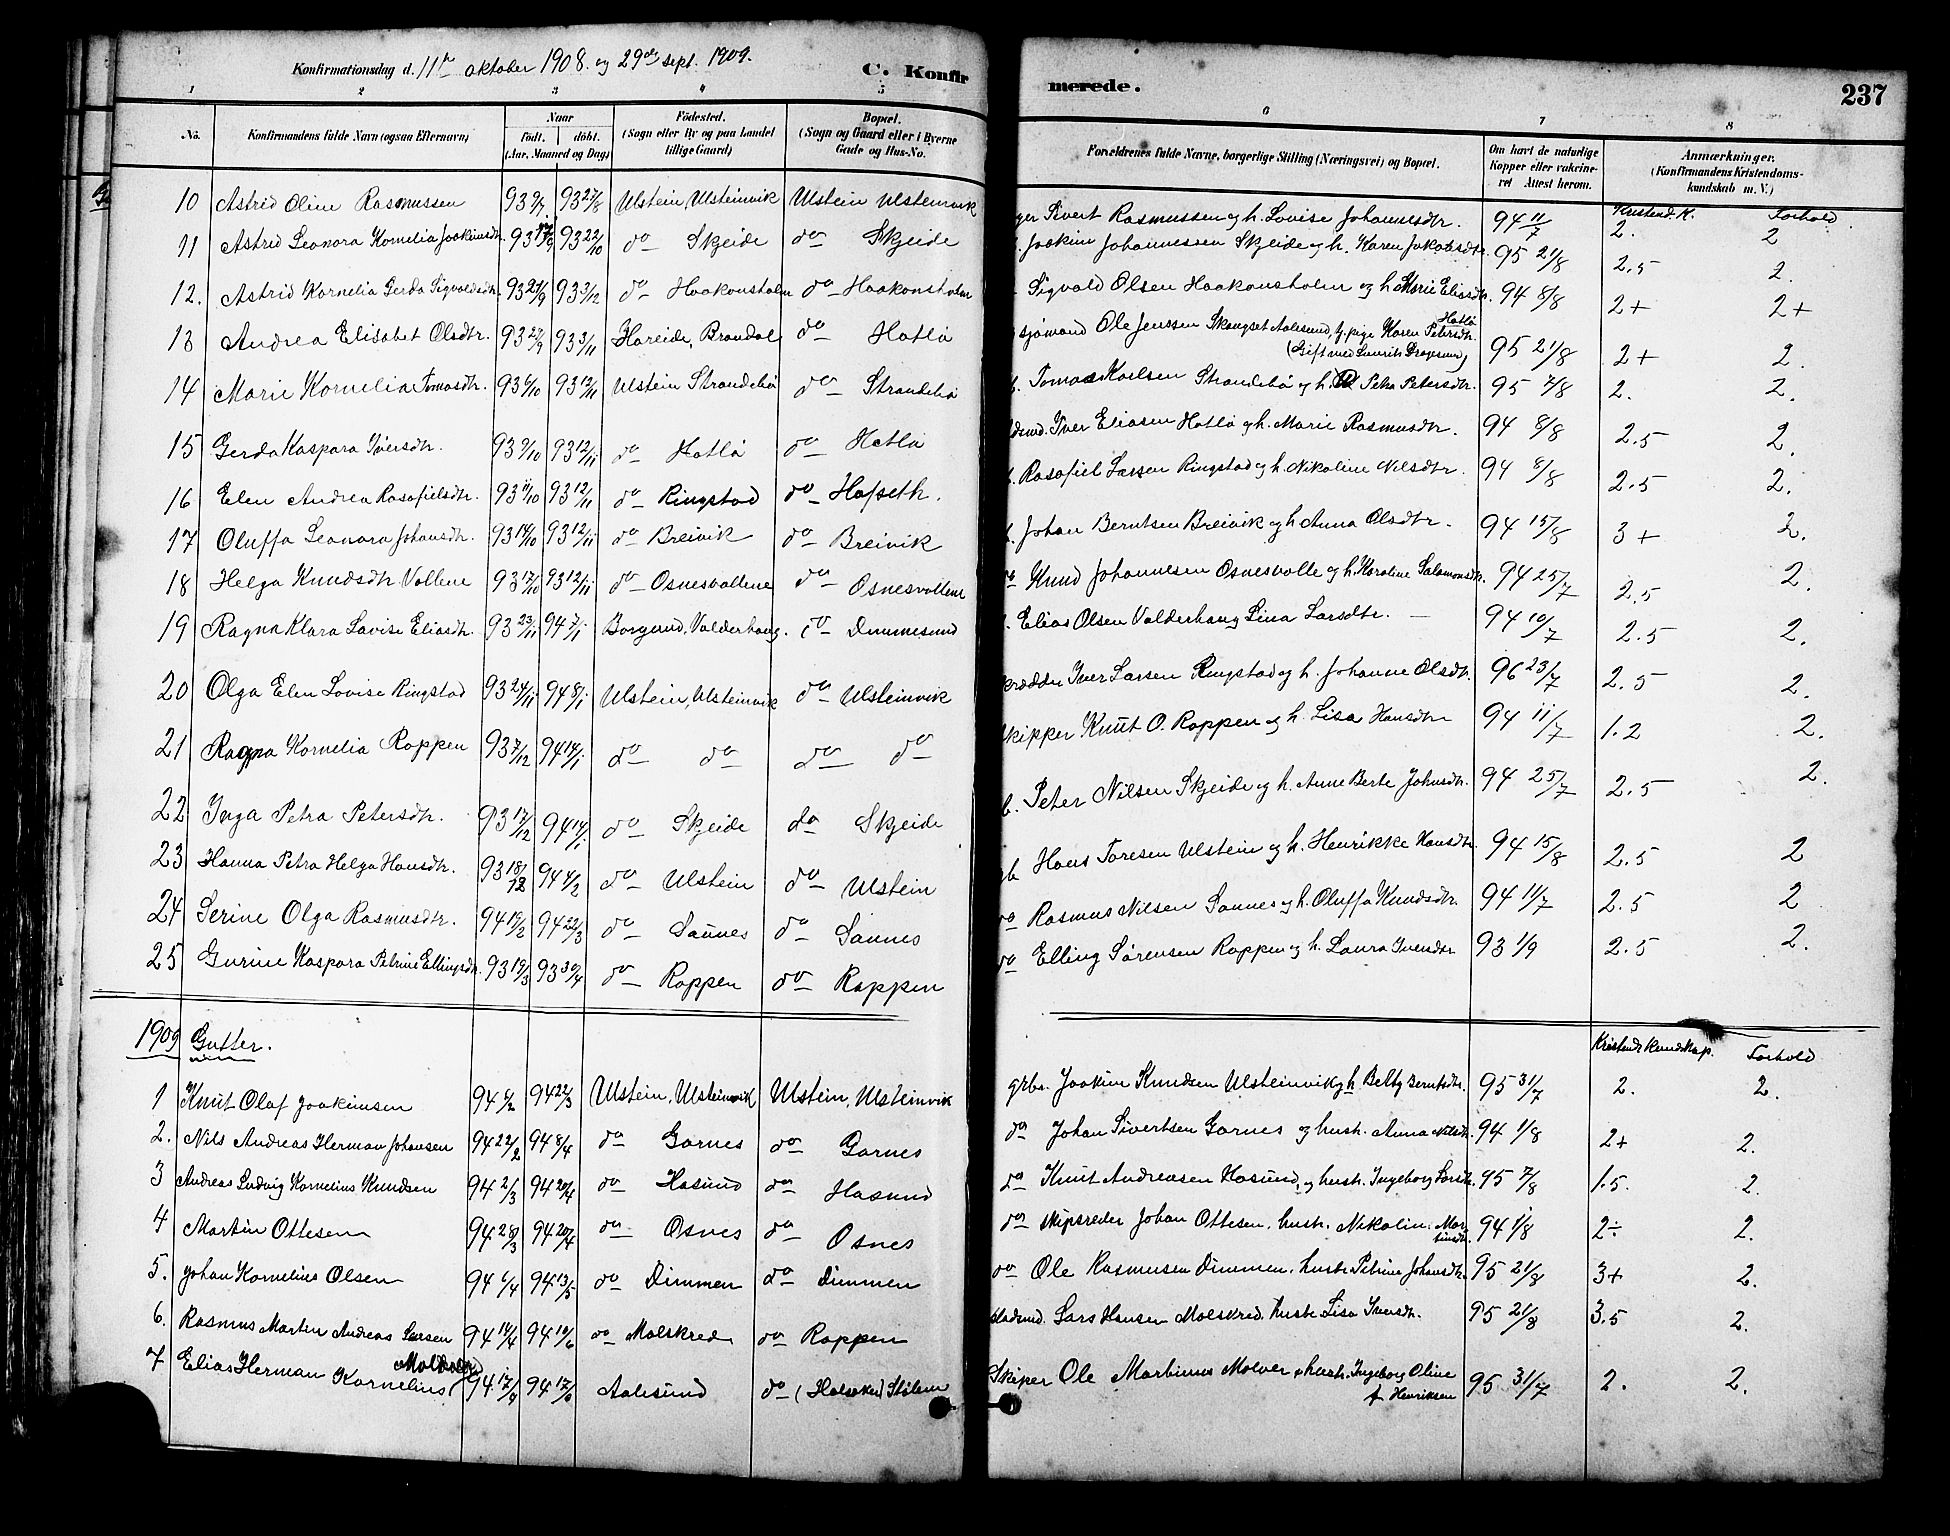 Konfirmationsdag d. 11te oktober 1908. og 29de sept. 1909. C. Konfir
merede. 237
1 2 3 4 5 6 7 8
No. Konfirmandens fulde Navn (ogsaa Efternavn) Naar født. døbt. (Aar, Maaned og Dag) Fødested. (Sogn eller By og paa Landet tillige Gaard) Bopæl. (Sogn og Gaard eller i Byerne Gade og Hus-No.
Forældrenes fulde Navne, borgerlige Stilling (Næringsvei) og Bopæl. Om havt de naturlige Kopper eller vakcineret Attest herom. Anmærkninger. (Konfirmandens Kristendomskundskab m. V.)
Kristend. K. Forhold
10 Astrid Oline Rasmussen 93 9/7 93 27/8 Ulstein Ulsteinvik Ulstein Ulsteinvik Sivert Rasmussen og h. Lovise Johannesdtr. 94 11/7 2. 2
11 Astrid Leonora Kornelia Joakimsdtr 93 93 22/10 do Skjeide do Skjeide Joakim Johannessen Skjeide og h. Karen Jakobsdtr. 95 21/8 2.5 2.
12. Astrid Kornelia Gerda Sigvaldsdtr. 93 21/9 93 3/12 do Haakonsholm do Haakonsholm Sigvald Olsen Haakonsholm og h. Marie Eliasdtr. 94 8/8 2+ 2+
13 Andrea Elisabet Olsdtr. 93 27/9 93 3/11 Hareide, Brandal do Hatlø sjømand Ole Jenssen Skangset Aalesund, f. pige Karen Petersdtr. Hatlø 95 21/8 2+ 2.
(Gift med Laurits Dragsund)
14 Marie Kornelia Tomasdtr. 93 6/10 93 12/11 Ulstein Strandebø do Strandebø Tomas Karlsen Strandebø og h. Petra Petersdtr. 95 7/8 2. 2.
15 Gerda Kaspara Iversdtr. 93 9/10 93 12/11 do Hatlø do Hatlø Iver Eliasen Hatlø og h. Marie Rasmusdtr. 94 8/8 2.5 2.
16 Elen Andrea Rasafielsdtr. 93 11/10 93 12/11 do Ringstad do Hafseth. Rasafiel Larsen Ringstad og h. Nikoline Nilsdtr. 94 8/8 2.5 2.
17 Oluffa Leonora Johansdtr. 93 14/10 93 12/11 do Breivik do Breivik Johan Berntsen Breivik og h. Anna Olsdtr. 94 15/8 3+ 2.
18 Helga Knudsdtr. Vollene 93 17/10 93 12/11 do Osnesvollene do Osnesvollene Knud Johannesen Osnesvolle og h. Karoline Salamonsdtr. 94 25/7 2.5 2.
19 Ragna Klara Lovise Eliasdtr. 93 23/11 94 7/1 Borgund, Valderhaug. do Dimmesund Elias Olsen Valderhaug Lina Larsdtr. 94 10/7 2.5 2.
20 Olga Elen Lovise Ringstad 93 24/11 94 8/1 Ulstein, Ulsteinvik do Ulsteinvik Iver Larsen Ringstad og h. Johanne Olsdtr. 96 23/7 2.5 2.
21 Ragna Kornelia Rappen 93 7/12 94 14/1 do do do do skipper Knut O. Rappen og h. Lisa Hansdtr 94 11/7 1.2 2.
22 Inga Petra Petersdtr. 93 17/12 94 14/1 do Skjeide do Skjeide Peter Nilsen Skjeide og h. Anne Berte Johnsdtr. 94 25/7 2.5 2.
23 Hanna Petra Helga Hansdtr. 93 18/12 94 4/2 do Ulstein do Ulstein Hans Toresen Ulstein og h. Henrikke Hansdtr. 94 15/8 2.5 2
24 Serine Olga Rasmusdtr. 94 19/2 94 22/3 do Saunes do Saunes do Rasmus Nilsen Saunes og h. Oluffa Knudsdtr. 94 11/7 2.5 2
25 Gurine Kaspara Petrine Ellingsdtr. 93 19/3 93 30/4 do Rappen do Rappen do Elling Sørensen Rappen og h. Laura Iversdtr 93 1/9 2.5 2.
1909 Gutter. Kristends Kundskap. Forhold
1 Knut Olaf Joakimsen 94 6/2 94 22/3 Ulstein, Ulsteinvik Ulstein, Ulsteinvik grbr. Joakim Knudsen Ulsteinvik og h. Berntsdtr. 95 31/7 2. 2.
2. Nils Andreas Herman Johansen 94 22/2 94 8/4 do Garnes do Garnes do Johan Sivertsen Garnes og hust. Anna Nilsdtr. 94 1/8 2+ 2.
3 Andreas Ludvig Kornelius Knudsen 94 2/3 94 20/4 do Hasund do Hasund do Knut Andreasen Hasund, og hust. Ingeborg Larsdtr. 95 7/8 1.5. 2.
4 Martin Ottesen 94 28/3 94 20/4 do Osnes do Osnes do skipsreder Johan Ottesen, hust. Nikoline Martinsdtr. 94 1/8 2÷ 2.
5. Johan Kornelius Olsen 94 6/4 94 13/5 do Dimmen do Dimmen do Ole Rasmusen Dimmen, hust. Petrine Johansdtr. 95 21/8 3+ 2.
6. Rasmus Martin Andreas Larsen 94 14/4 94 10/6 do Malskred do Rappen Lars Hansen Malskred, hust. Lisa Iversdtr. 95 21/8 3.5 2.
7 Elias Herman Kornelius 94 17/4 94 17/6 Aalesund do Skiper Ole Martinus Molvær, hust. Ingeborg Oline f. Henriksen 95 31/7 2. 2.